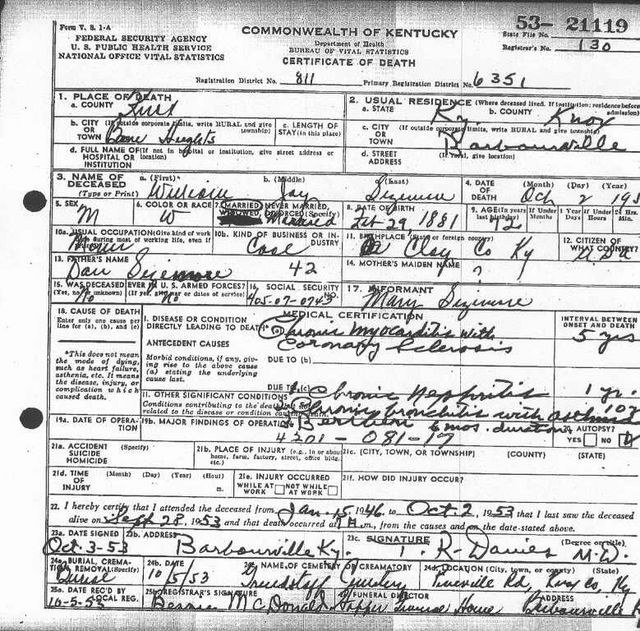 Form V. S. 1-A
COMMONWEALTH OF KENTUCKY
53- 21119
FEDERAL SECURITY AGENCY
Department of Health
State File No.
U. S. PUBLIC HEALTH SERVICE
BUREAU OF VITAL STATISTICS
Registrar's No. 130
NATIONAL OFFICE VITAL STATISTICS
CERTIFICATE OF DEATH
Registration District No. 811 Primary Registration District No. 6351
1. PLACE OF DEATH
a. COUNTY
2. USUAL RESIDENCE (Where deceased lived. If institution: residence before
a. STATE Ky. b. COUNTY Knox
b. CITY (If outside corporate limits, write RURAL and give township)
OR TOWN Heights
c. LENGTH OF STAY (in this place)
c. CITY (If outside corporate limits, write RURAL and give township)
OR TOWN Barbourville
d. FULL NAME OF (If not in hospital or institution, give street address or location)
HOSPITAL OR INSTITUTION
d. STREET ADDRESS (If rural, give location)
3. NAME OF DECEASED (Type or Print)
a. (First) William b. (Middle) Jay c. (Last) Sizemore
4. DATE OF DEATH (Month) (Day) (Year) Oct 2 195
5. SEX M
6. COLOR OR RACE W
7. MARRIED, NEVER MARRIED, WIDOWED, DIVORCED (Specify) Married
8. DATE OF BIRTH Feb. 29 1881
9. AGE (In years last birthday) 72 If Under 1 Year Months Days If Under
10a. USUAL OCCUPATION (Give kind of work done during most of working life, even if retired) Miner
10b. KIND OF BUSINESS OR INDUSTRY Coal
11. BIRTHPLACE (State or foreign country) Clay Co Ky
12. CITIZEN OF WHAT COUNTRY? U.S.A
13. FATHER'S NAME Dan Sizemore
42
14. MOTHER'S MAIDEN NAME ?
15. WAS DECEASED EVER IN U. S. ARMED FORCES? (Yes, no, or unknown) No (If yes, give war or dates of service) No
16. SOCIAL SECURITY NO. 405-07-0743
17. INFORMANT Mary Sizemore
18. CAUSE OF DEATH
MEDICAL CERTIFICATION
INTERVAL BETWEEN ONSET AND DEATH
Enter only one cause per line for (a), (b), and (c)
I. DISEASE OR CONDITION DIRECTLY LEADING TO DEATH* (a) Chronic myocarditis with 5 yrs
Coronary Sclerosis
*This does not mean the mode of dying, such as heart failure, asthenia, etc. It means the disease, injury, or complication which caused death.
ANTECEDENT CAUSES
Morbid conditions, if any, giving rise to the above cause (a) stating the underlying cause last.
DUE TO (b)
DUE TO (c) Chronic Nephritis 1 yr.
II. OTHER SIGNIFICANT CONDITIONS
Conditions contributing to the death but not related to the disease or condition causing death.
Chronic bronchitis with asthma 10
Beriberi 6 mos. duration
19a. DATE OF OPERATION
19b. MAJOR FINDINGS OF OPERATION
4201 - 081-17
20. AUTOPSY? YES NO
21a. ACCIDENT SUICIDE HOMICIDE
21b. PLACE OF INJURY (e.g., in or about home, farm, factory, street, office bldg., etc.)
21c. (CITY, TOWN, OR TOWNSHIP) (COUNTY) (STATE)
21d. TIME OF INJURY (Month) (Day) (Year) (Hour)
21e. INJURY OCCURRED WHILE AT WORK NOT WHILE AT WORK
21f. HOW DID INJURY OCCUR?
22. I hereby certify that I attended the deceased from Jan. 15, 1946, to Oct. 2, 1953 that I last saw the deceased
alive on Sept 28, 1953 and that death occurred at m., from the causes and on the date stated above.
23a. DATE SIGNED Oct. 3-53
23b. ADDRESS Barbourville Ky.
23c. SIGNATURE T. R. Davies (Degree or title) M.D.
24a. BURIAL, CREMATION, REMOVAL (Specify) Burial
24b. DATE 10/5/53
24c. NAME OF CEMETERY OR CREMATORY Cemetery
24d. LOCATION (City, town, or county) (State) Pineville Rd, Knox Co, Ky
25a. DATE REC'D BY LOCAL REG. 10-5-53
25b. REGISTRAR'S SIGNATURE McDonald
FUNERAL DIRECTOR Hopper Funeral Home
ADDRESS Barbourville